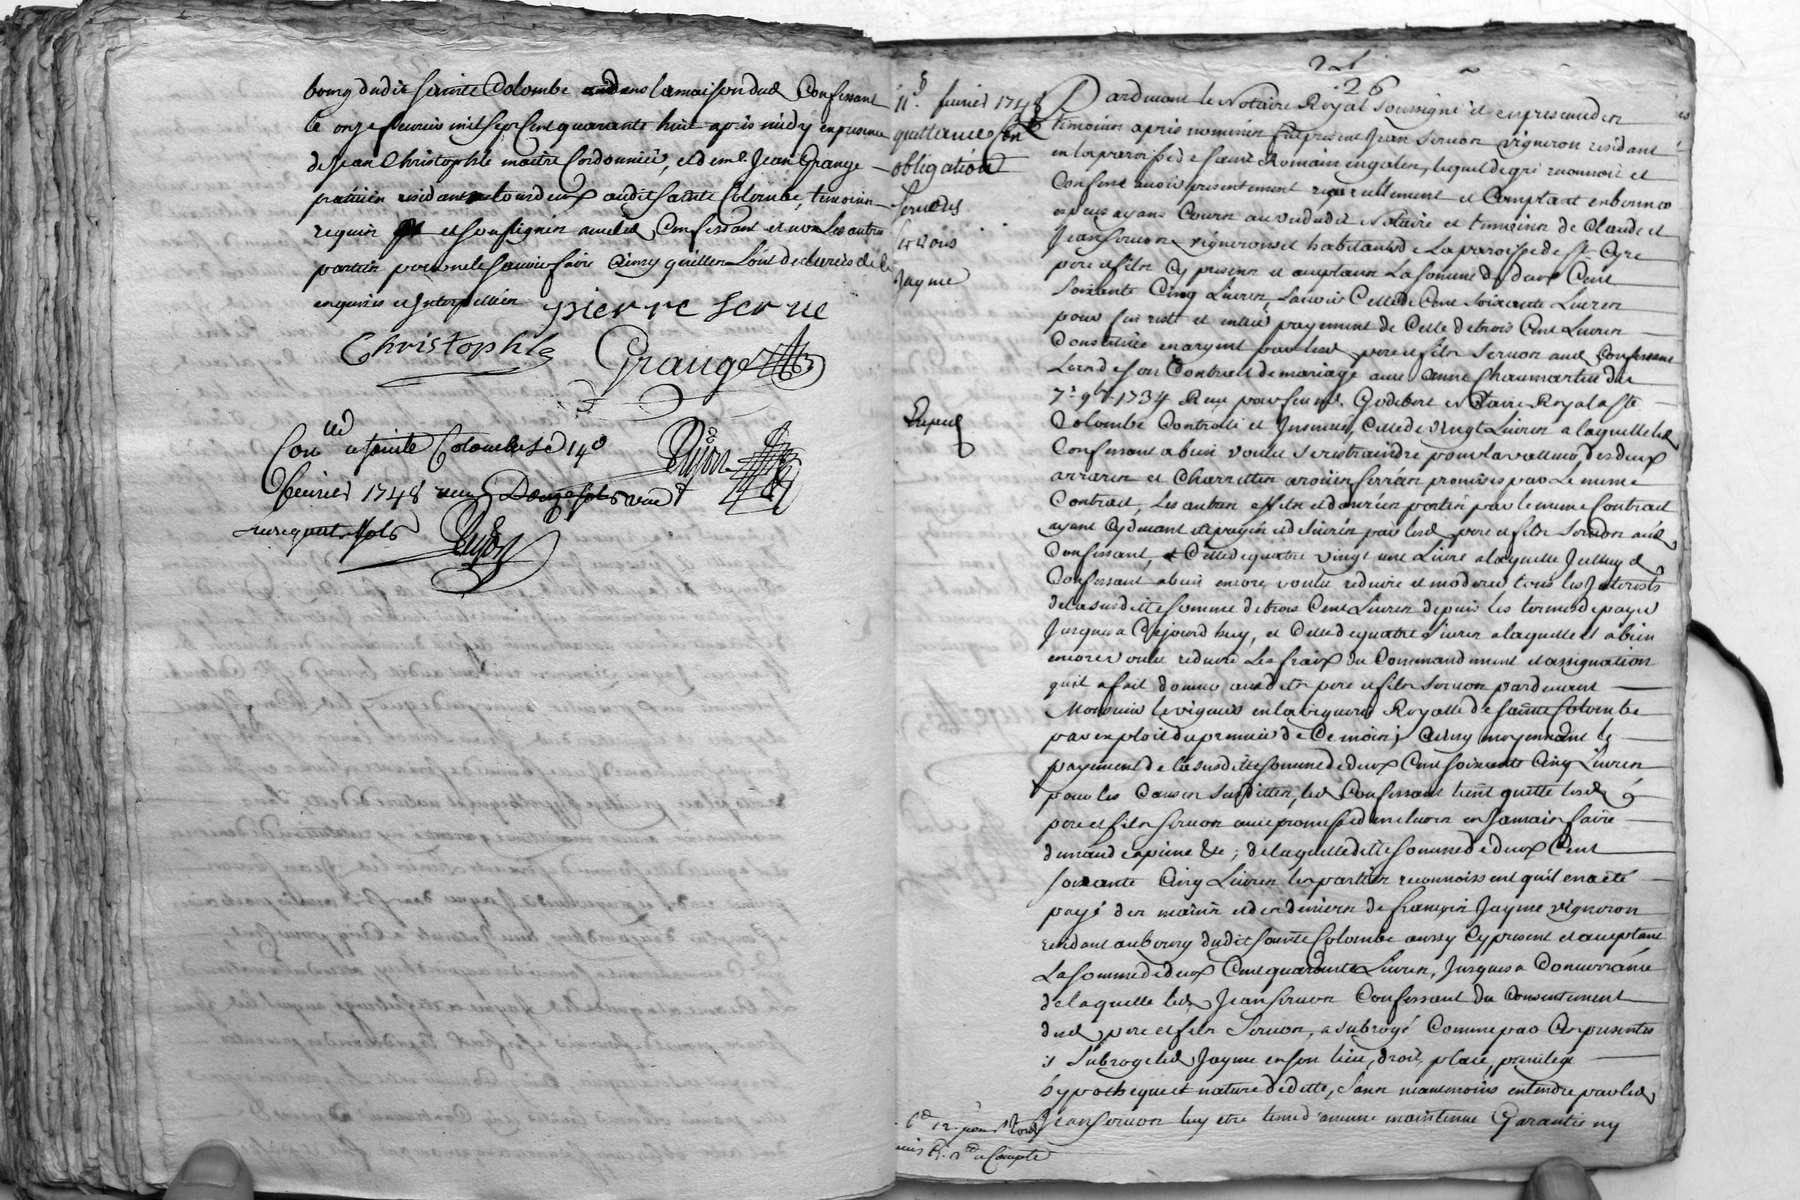 bourg dudit Sainte Colombe dans la maison dud Confessant
le onze fevrier mil sept cent quarante huit apres midy en presence
de Jean Christophle maitre Cordonnier, et de me Jean Grange
praticien residants tous deux audit Sainte Colombe, temoins
requis et soussignes avec led Confessant et non les autres
parties pour ne le scavoir faire ainsy qu'elles l'ont declaré de ce
enquises et Interpellées
pierre Serve
Christophle Grange
Con.lé a Sainte Colombe le 14e
fevrier 1748 recu Douze sols
Dujon
Dujon
26
11e fevrier 1748
quittance Con
obligation
Servons
Jayme
Expedié
Pardevant le Notaire Royal soussigné et en presence des
temoins apres nommes fut present Jean Servon vigneron residant
en la paroisse de Saint Romain en galen, lequel de gré reconnoit et
Confesse avoir presentement reellement et Comptant en bonnes
especes ayans Cours au vu dudit Notaire et temoins de Claude et
Jean Servon vignerons et habitants de La paroisse de St Cyre
pere et fils Cy presens et aceptans La somme de deux Cent
soixante Cinq Livres, Sauoir Celle de Cent soixante Livres
pour fin reste et entier payement de Celle de trois Cent Livres
Constituée en argent par lesd pere et fils Servon aud Confessant
Lors de son Contrat de mariage avec Anne Chaumartin du
7e 9bre 1734 Recu par feu me Godebert Notaire Royal a Ste
Colombe Controllé et Insinué, Celle de vingt Livres a laquelle led
Confessant a bien voulu se restraindre pour la valleur des deux
promises par Le meme
Contrat, Les autres effets et danrées portés par le meme Contrat
ayant Cy devant eté payés et delivrés par lesd pere et fils Servon aud
Confessant, et Celle de quatre vingt une Livre a laquelle Icelluy
Confessant a bien encore voulu reduire et moderer tous les Interests
de la susditte somme de trois Cent Livres depuis les termes de payer
Jusques a Cejourd huy, et Celle de quatre Livres a laquelle il a bien
encore voulu reduire Les fraix du Commandement et assignation
qu'il a fait donner ausdits pere et fils Servon pardevant
Monsieur le viguier en la viguerie Royalle de Sainte Colombe
par exploit du premier de Ce mois, Ainsy moyennant le
payement de la susditte somme de deux Cent soixante Cinq Livres
pour les Causes susdittes, led Confessant tient quitte lesd
pere et fils Servon avec promesse de ne leur en Jamais faire
demande expresse &c; de laquelle ditte somme de deux Cent
soixante Cinq Livres les parties reconnoissent qu'il en a eté
payé des mains et des deniers de françois Jayme vigneron
residant au bourg dudit Sainte Colombe aussy Cy present et aceptant
La somme de deux Cent quarante Livres, Jusques a Concurrance
de laquelle led Jean Servon Confessant du Consentement
desd pere et fils Servon, a subrogé Comme par Ces presentes
il subroge led Jayme en son lieu, droit, place, privilege
hypotheque et nature de dette, sans neantmoins entendre par led
Jean Servon luy etre tenu d'aucune maintenue Garantie ny